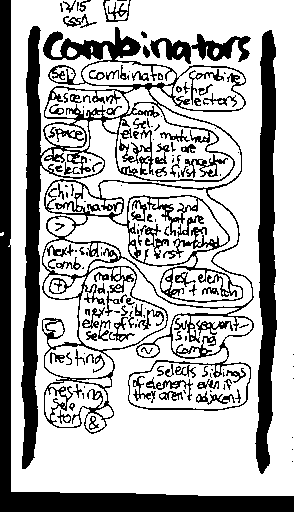 12/15
CSS1 46
Combinators
Sel. Combinator Combine
other
selectors
Descendant
Combinator
space
descen.
selector
Comb
2 sel.
elem matched
by 2nd sel are
selected if ancestor
matches first sel.
Child
Combinator
>
matches 2nd
sele. that are
direct children
of elem matched
by first
desc. elem
don't match
next-sibling
comb.
+
matches
2nd sel
that are
next-sibling
elem of first
selector
Subsequent-
sibling
comb.
~
selects siblings
of element even if
they aren't adjacent
nesting
nesting
sele
ctor &